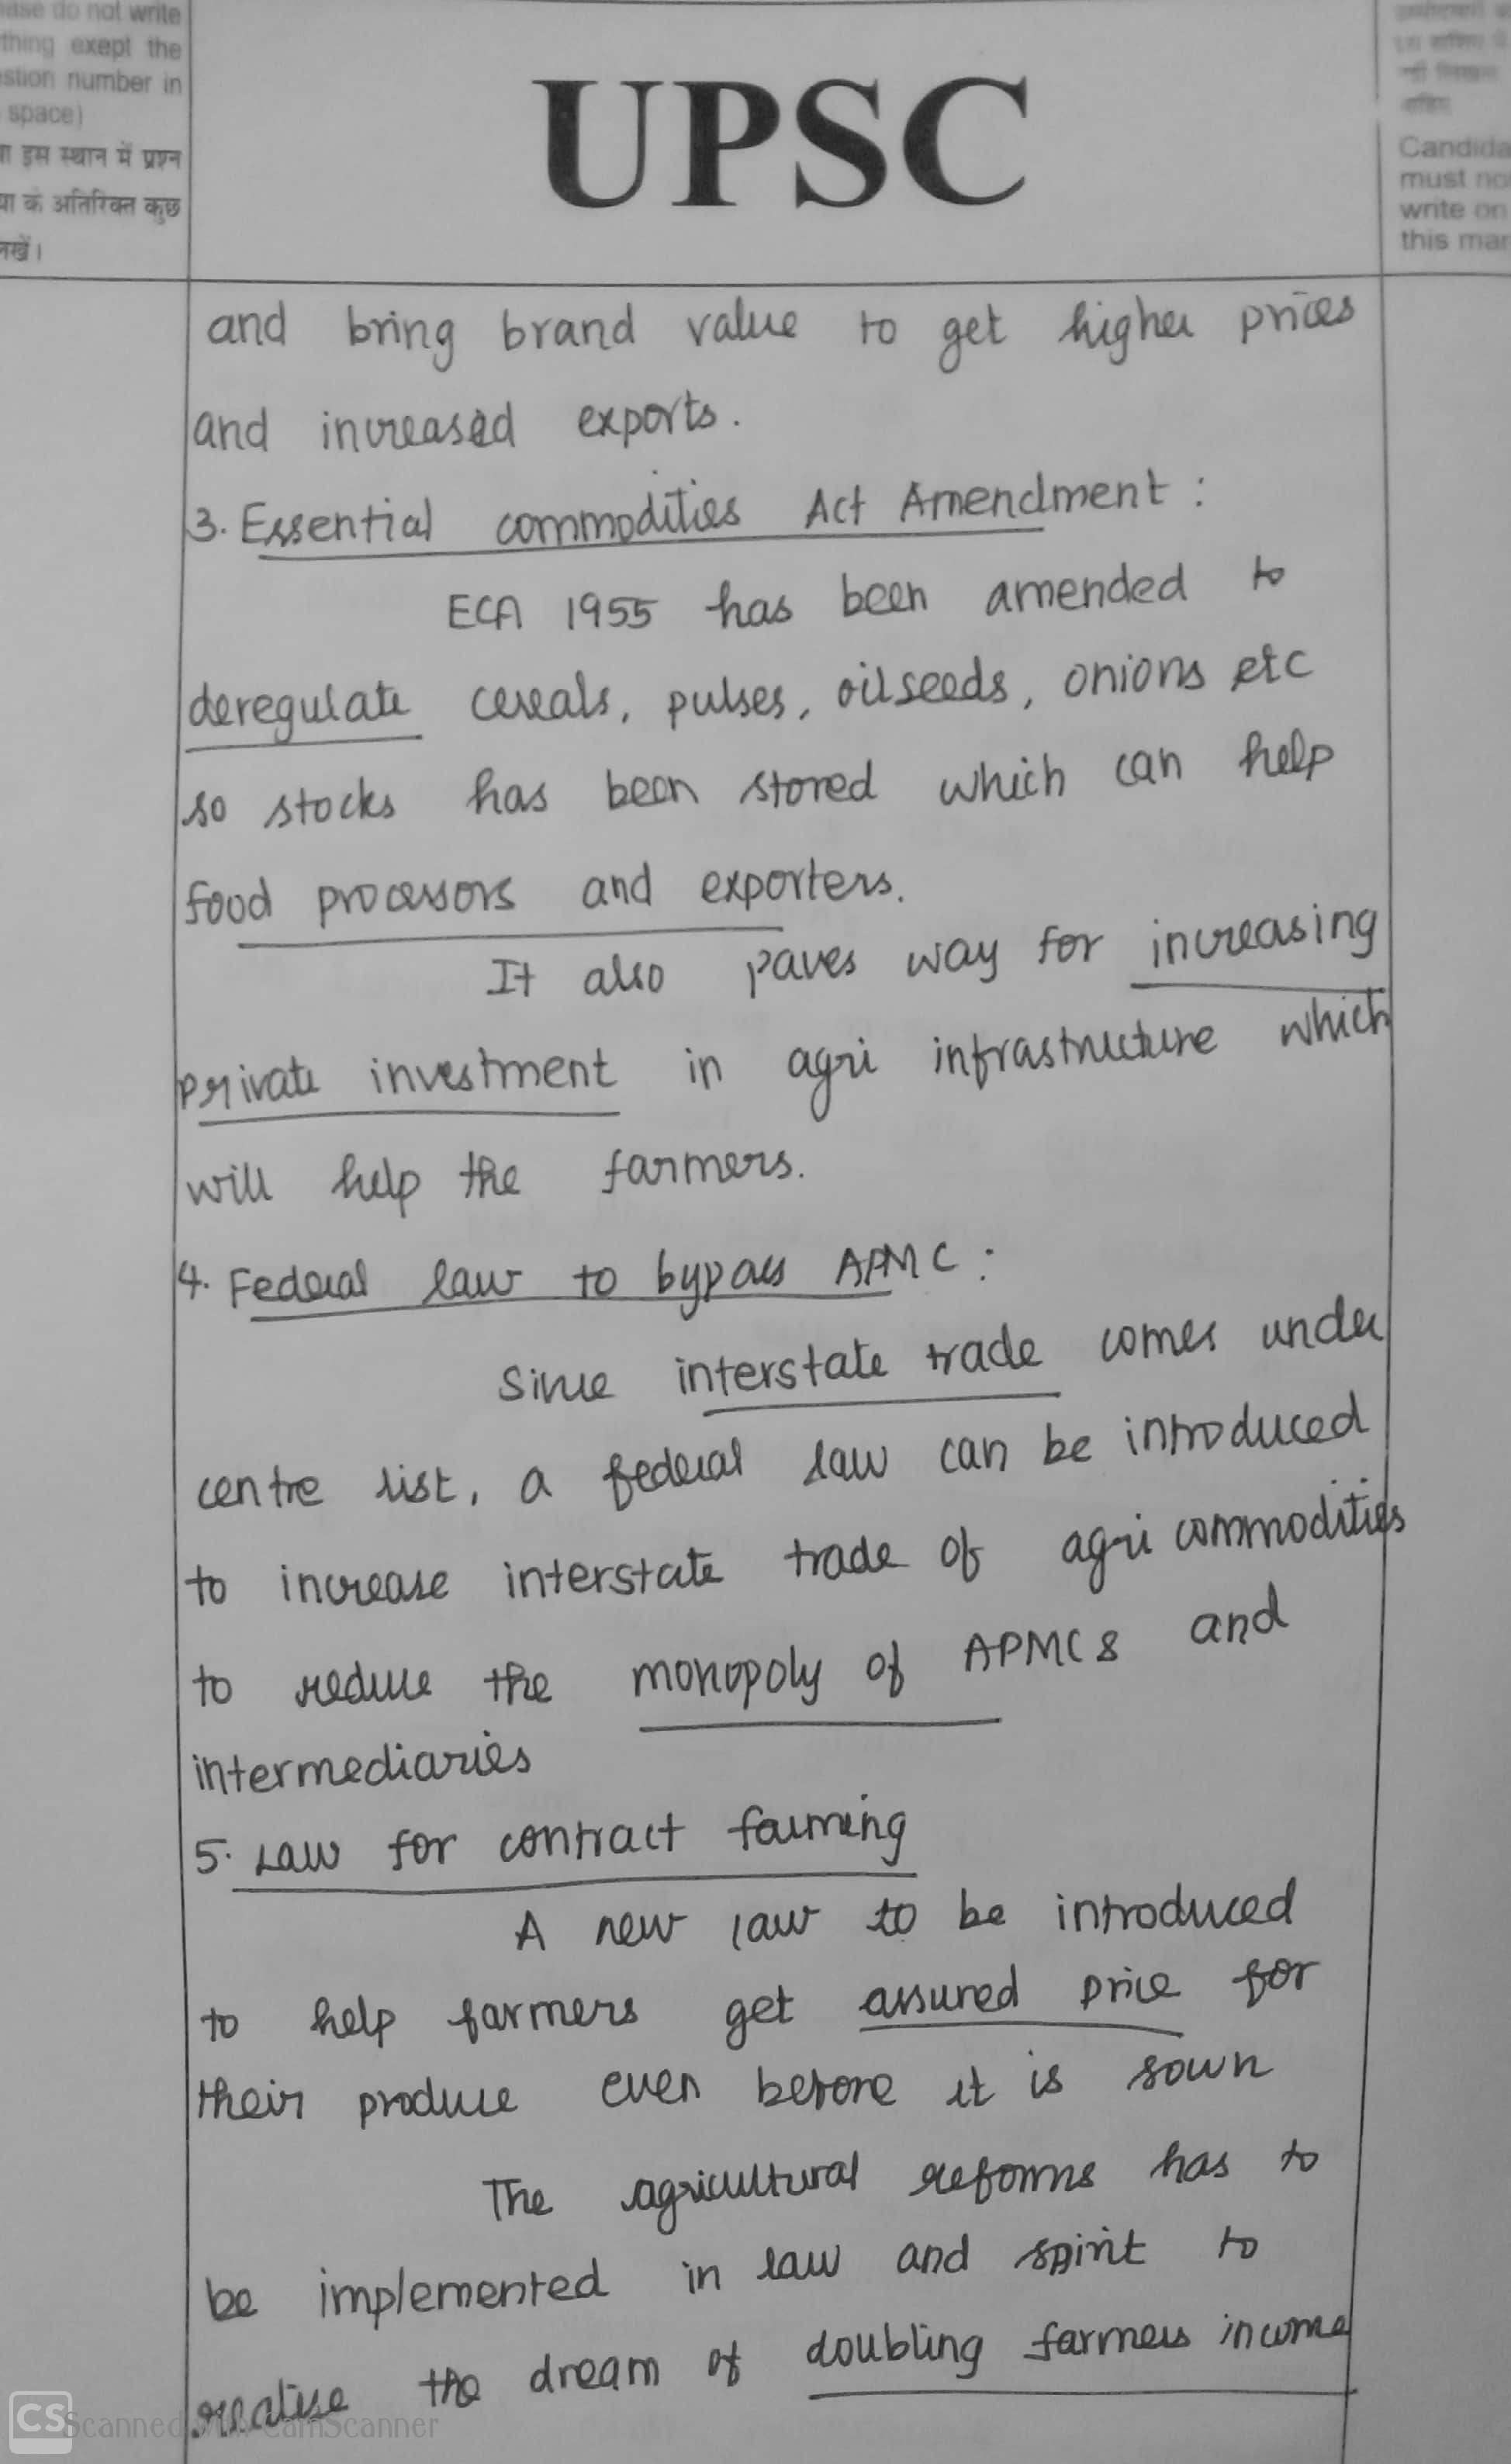 ase do not write
thing exept the
stion number in
space)
इस स्थान में प्रश्न
या के अतिरिक्त कुछ
लखें।
UPSC
Candida
must no
write on
this mar
and bring brand value to get higher prices
and increased exports.
3. Essential commodities Act Amendment :
ECA 1955 has been amended to
deregulate cereals, pulses, oilseeds, onions etc
so stocks has been stored which can help
food processors and exporters.
It also paves way for increasing
private investment in agri infrastructure which
will help the farmers.
4. Federal law to bypass APMC :
Since interstate trade comes under
centre list, a federal law can be introduced
to increase interstate trade of agri commodities
to reduce the monopoly of APMCs and
intermediaries
5. Law for contract farming
A new law to be introduced
to help farmers get assured price for
their produce even before it is sown
The agricultural reforms has to
be implemented in law and spirit to
realise the dream of doubling farmers income
CS Scanned with CamScanner